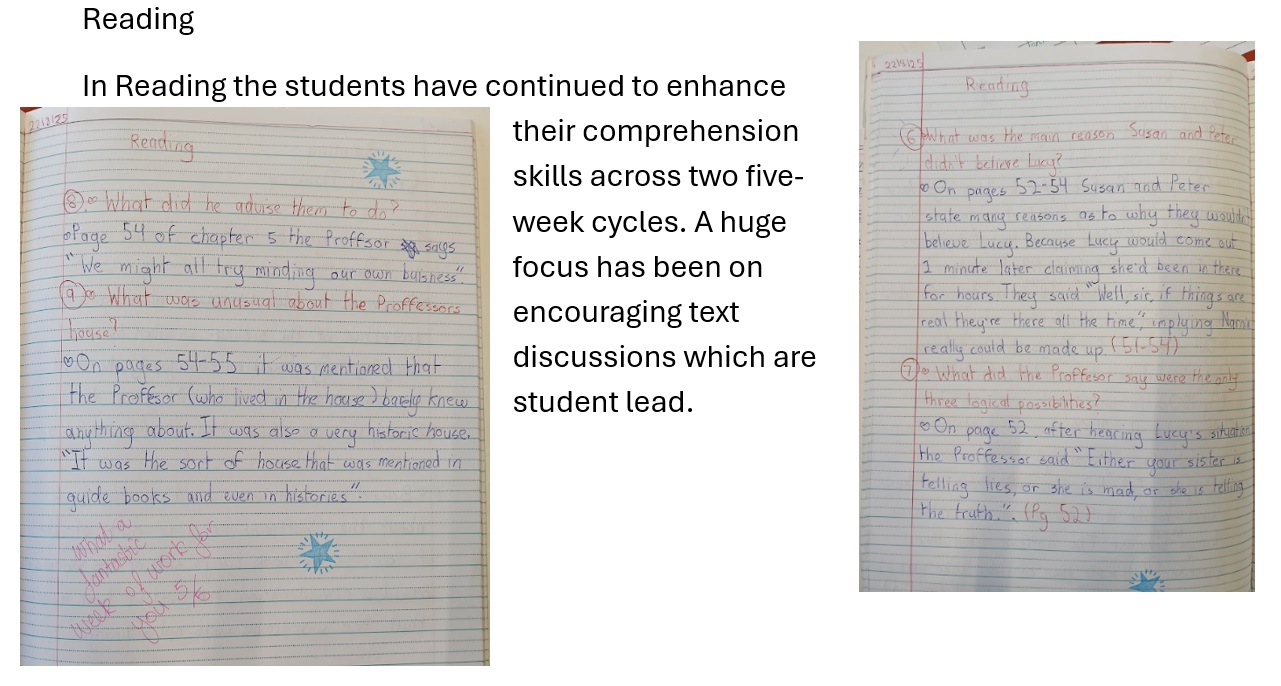 Reading
In Reading the students have continued to enhance
their comprehension
skills across two five-
week cycles. A huge
focus has been on
encouraging text
discussions which are
student lead.
22/8/25
Reading
8 What did he advise them to do?
Page 54 of chapter 5 the Proffsor says
"We might all try minding our own buisness".
9 What was unusual about the Proffessors
house?
On pages 54-55 it was mentioned that
the Proffesor (who lived in the house) barely knew
anything about. It was also a very historic house.
"It was the sort of house that was mentioned in
guide books and even in histories".
What a
fantastic
week of work for
you 5/6
22/8/25
Reading
6 What was the main reason Susan and Peter
didn't believe Lucy?
On pages 52-54 Susan and Peter
state many reasons as to why they wouldn
believe Lucy. Because Lucy would come out
1 minute later claiming she'd been in there
for hours. They said "Well, sir, if things are
real they're there all the time", implying Narnia
really could be made up. (51-54)
7 What did the Proffesor say were the only
three logical possibilities?
On page 52, after hearing Lucy's situation
the Proffessor said "Either your sister is
telling lies, or she is mad, or she is telling
the truth.". (Pg 52)